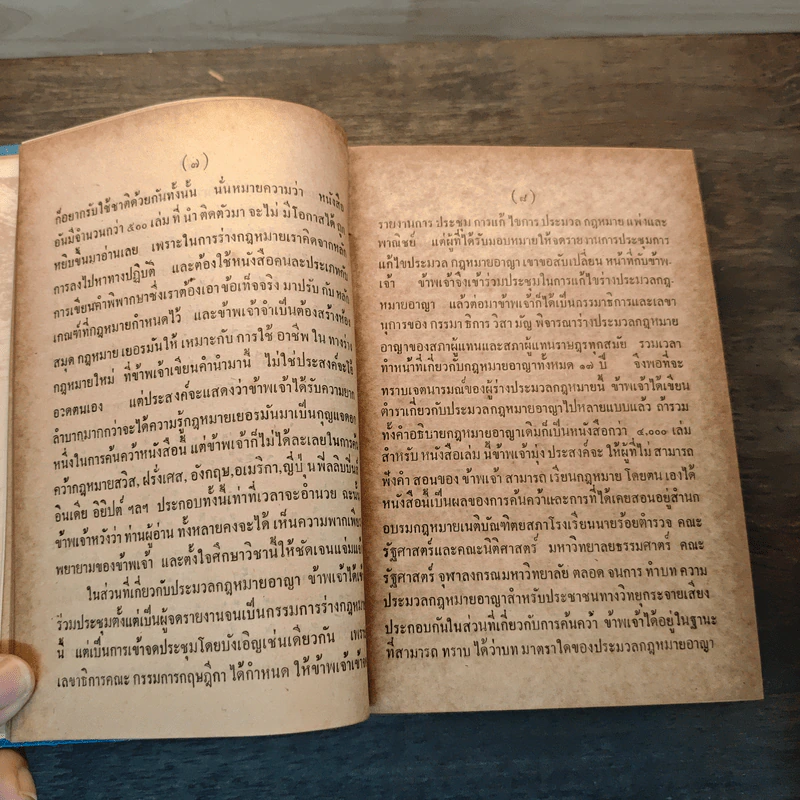 (๗)
ก็อยากรับใช้ชาติด้วยกันทั้งนั้น นั่นหมายความว่า หนังสือ
อันมีจำนวนกว่า ๕๐๐ เล่ม ที่ นำ ติดตัวมา จะไม่ มีโอกาสได้
หยิบขึ้นมาอ่านเลย เพราะในการร่างกฎหมายเราคิดจากหลัก
การลงไปหาทางปฏิบัติ และต้องใช้หนังสือคนละประเภทกับ
การเขียนคำพิพากษาซึ่งเราต้องเอาข้อเท็จจริง มาปรับ กับ หลัก
เกณฑ์ที่กฎหมายกำหนดไว้ และข้าพเจ้าจำเป็นต้องสร้างห้อง
สมุด กฎหมาย เยอรมันให้ เหมาะกับ การใช้ อาชีพ ใน ทางร่าง
กฎหมายใหม่ ที่ข้าพเจ้าเขียนคำนำมานี้ ไม่ใช่ประสงค์จะใช้
อวดตนเอง แต่ประสงค์จะแสดงว่าข้าพเจ้าได้รับความยาก
ลำบากมากกว่าจะได้ความรู้กฎหมายเยอรมันมาเป็นกุญแจดอก
หนึ่งในการค้นคว้าหนังสือนี้ แต่ข้าพเจ้าก็ไม่ได้ละเลยในการค้น
คว้ากฎหมายสวิส, ฝรั่งเศส, อังกฤษ, อเมริกา, ญี่ปุ่น ฟิลิปปินส์
อินเดีย อิยิปต์ ฯลฯ ประกอบทั้งนี้เท่าที่เวลาจะอำนวย ฉะนั้น
ข้าพเจ้าหวังว่า ท่านผู้อ่าน ทั้งหลายคงจะได้ เห็นความพากเพียร
พยายามของข้าพเจ้า และตั้งใจศึกษาวิชานี้ให้ชัดเจนแจ่มแจ้ง
ในส่วนที่เกี่ยวกับประมวลกฎหมายอาญา ข้าพเจ้าได้เข้า
ร่วมประชุมตั้งแต่เป็นผู้จดรายงานจนเป็นกรรมการร่างกฎหมาย
นี้ แต่เป็นการเข้าจดประชุมโดยบังเอิญเช่นเดียวกัน เพราะ
เลขาธิการคณะ กรรมการกฤษฎีกา ได้กำหนด ให้ข้าพเจ้าเข้าจด
(๘)
รายงานการ ประชุม การแก้ ไขการ ประมวล กฎหมาย แพ่งและ
พาณิชย์ แต่ผู้ที่ได้รับมอบหมายให้จดรายงานการประชุมการ
แก้ไขประมวล กฎหมายอาญา เขาขอสับเปลี่ยน หน้าที่กับข้าพ-
เจ้า ข้าพเจ้าจึงเข้าร่วมประชุมในการแก้ไขร่างประมวลกฎ-
หมายอาญา แล้วต่อมาข้าพเจ้าก็ได้เป็นกรรมาธิการและเลขา
นุการของ กรรมาธิการ วิสามัญ พิจารณาร่างประมวลกฎหมาย
อาญาของสภาผู้แทนและสภาผู้แทนราษฎรทุกสมัย รวมเวลา
ทำหน้าที่เกี่ยวกับกฎหมายอาญาทั้งหมด ๑๗ ปี จึงพอที่จะ
ทราบเจตนารมณ์ของผู้ร่างประมวลกฎหมายนี้ ข้าพเจ้าได้เขียน
ตำราเกี่ยวกับประมวลกฎหมายอาญาไปหลายแบบแล้ว ถ้ารวม
ทั้งคำอธิบายกฎหมายอาญาเดิมก็เป็นหนังสือกว่า ๔,๐๐๐ เล่ม
สำหรับ หนังสือเล่ม นี้ข้าพเจ้ามุ่ง ประสงค์จะ ให้ผู้ที่ไม่ สามารถ
ฟังคำ สอนของ ข้าพเจ้า สามารถ เรียนกฎหมาย โดยตน เองได้
หนังสือนี้เป็นผลของการค้นคว้าและการที่ได้เคยสอนอยู่สำนัก
อบรมกฎหมายเนติบัณฑิตยสภาโรงเรียนนายร้อยตำรวจ คณะ
รัฐศาสตร์และคณะนิติศาสตร์ มหาวิทยาลัยธรรมศาตร์ คณะ
รัฐศาสตร์ จุฬาลงกรณมหาวิทยาลัย ตลอด จนการ ทำบท ความ
ประมวลกฎหมายอาญาสำหรับประชาชนทางวิทยุกระจายเสียง
ประกอบกันในส่วนที่เกี่ยวกับการค้นคว้า ข้าพเจ้าได้อยู่ในฐานะ
ที่สามารถ ทราบ ได้ว่าบท มาตราใดของประมวลกฎหมายอาญา